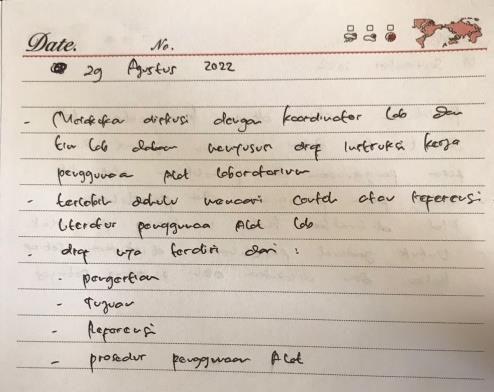 Date. No.
29 Agustus 2022
- Melakukan diskusi dengan koordinator lab dan
tim lab dalam menyusun draf instruksi kerja
penggunaan alat laboratorium
- terlebih dahulu mencari contoh atau referensi
literatur penggunaan Alat lab
- draf nya terdiri dari :
- pengertian
- Tujuan
- Referensi
- prosedur penggunaan Alat